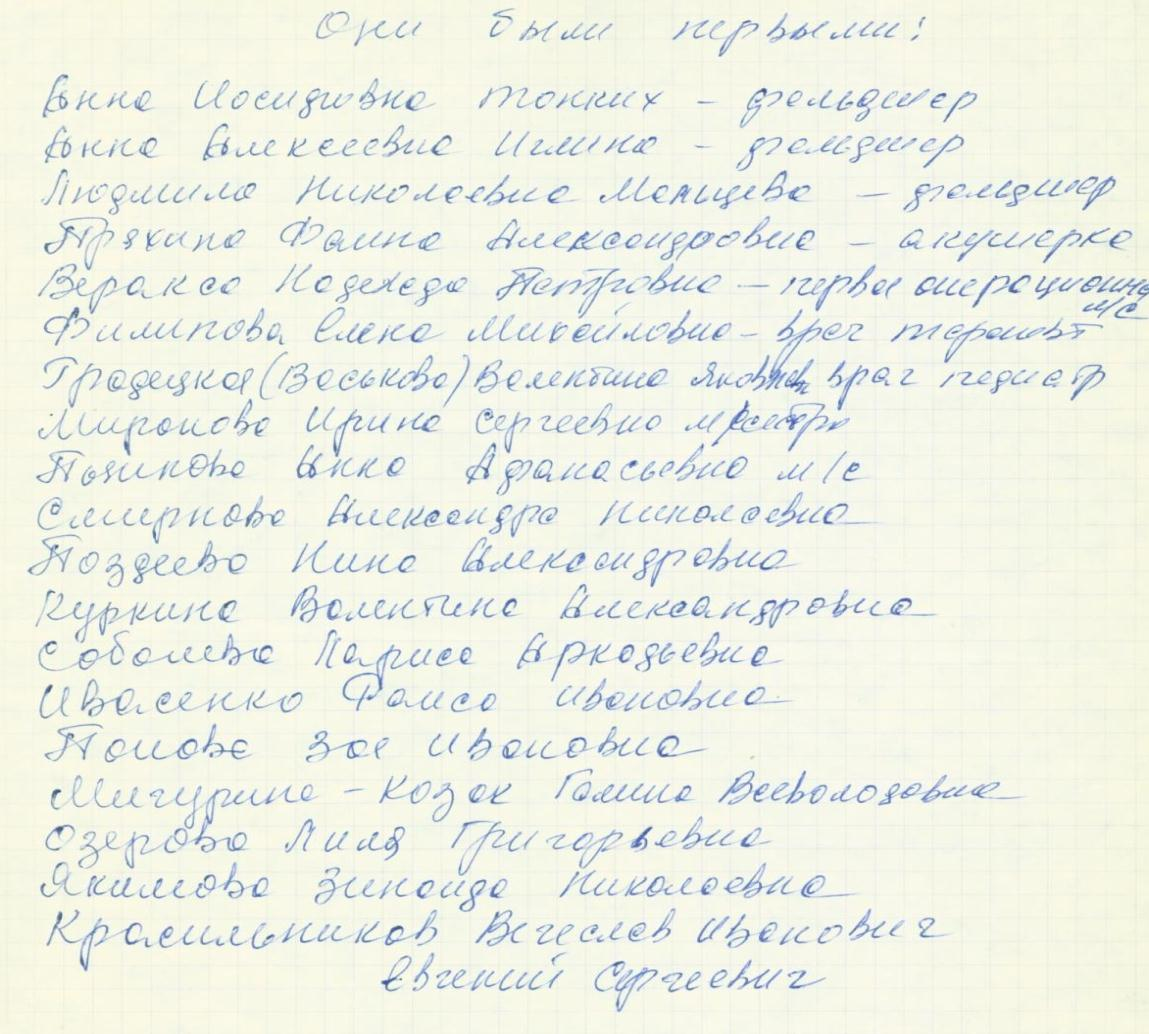 Они были первыми!
Анна Иосифовна Тонких - фельдшер
Анна Алексеевна Иглина - фельдшер
Людмила Николаевна Мальцева - фельдшер
Пряхина Фаина Александровна - акушерка
Веракса Надежда Петровна - первая операционна
м/с
Филипова Елена Михайловна - врач терапевт
Градецкая (Воськова) Валентина врач педиатр
Миронова Ирина Сергеевна м/сестра
Анна Афанасьевна м/с
Смирнова Александра Николаевна
Поздеева Нина Александровна
Куркина Валентина Александровна
Соболева Лариса Аркадьевна
Ивасенко Фаиса Ивановна
Попова Зоя Ивановна
Мичурина - Козак Галина Всеволодовна
Озерова Лиля Григорьевна
Якимова Зинаида Николаевна
Красильников Вечеслав Иванович
Евгений Сергеевич